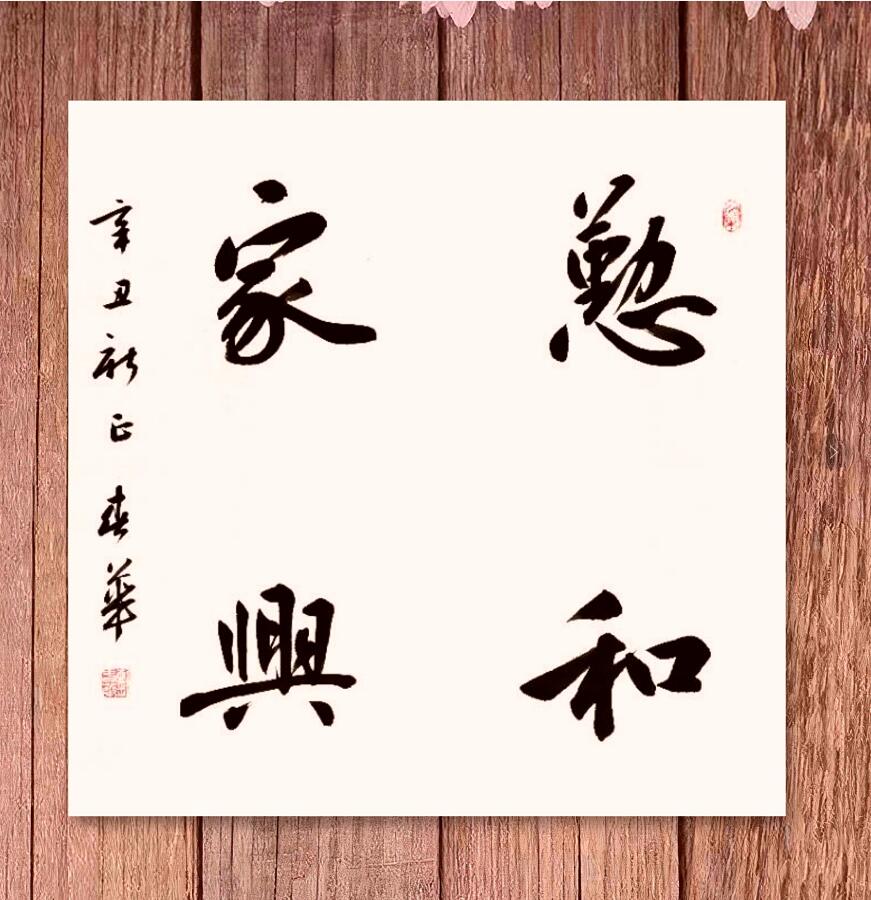 懃和
家興
辛丑新正 春華